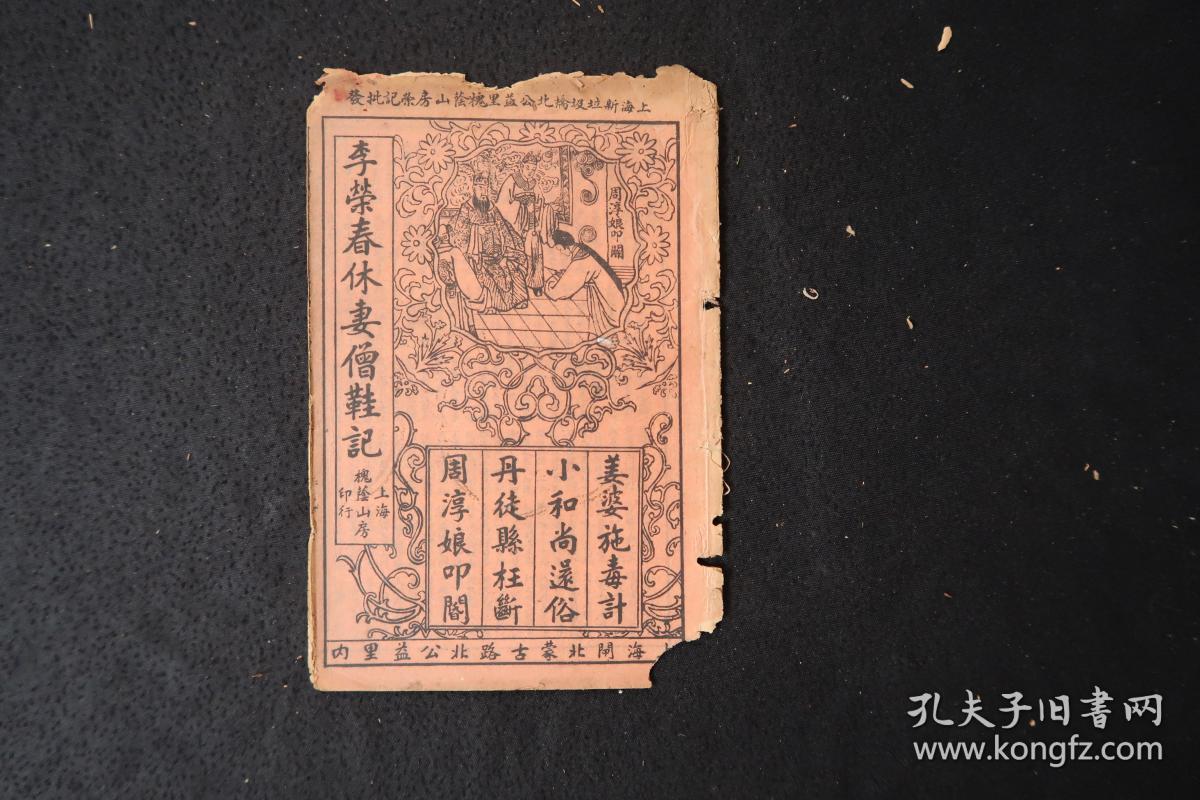 上海新垃圾橋北公益里槐蔭山房榮記批發
周淳娘叩閽
姜婆施毒計
小和尚還俗
丹徒縣枉斷
周淳娘叩閽
李榮春休妻僧鞋記
上海
槐蔭山房
印行
上海閘北蒙古路北公益里内
孔夫子旧書网
www.kongfz.com